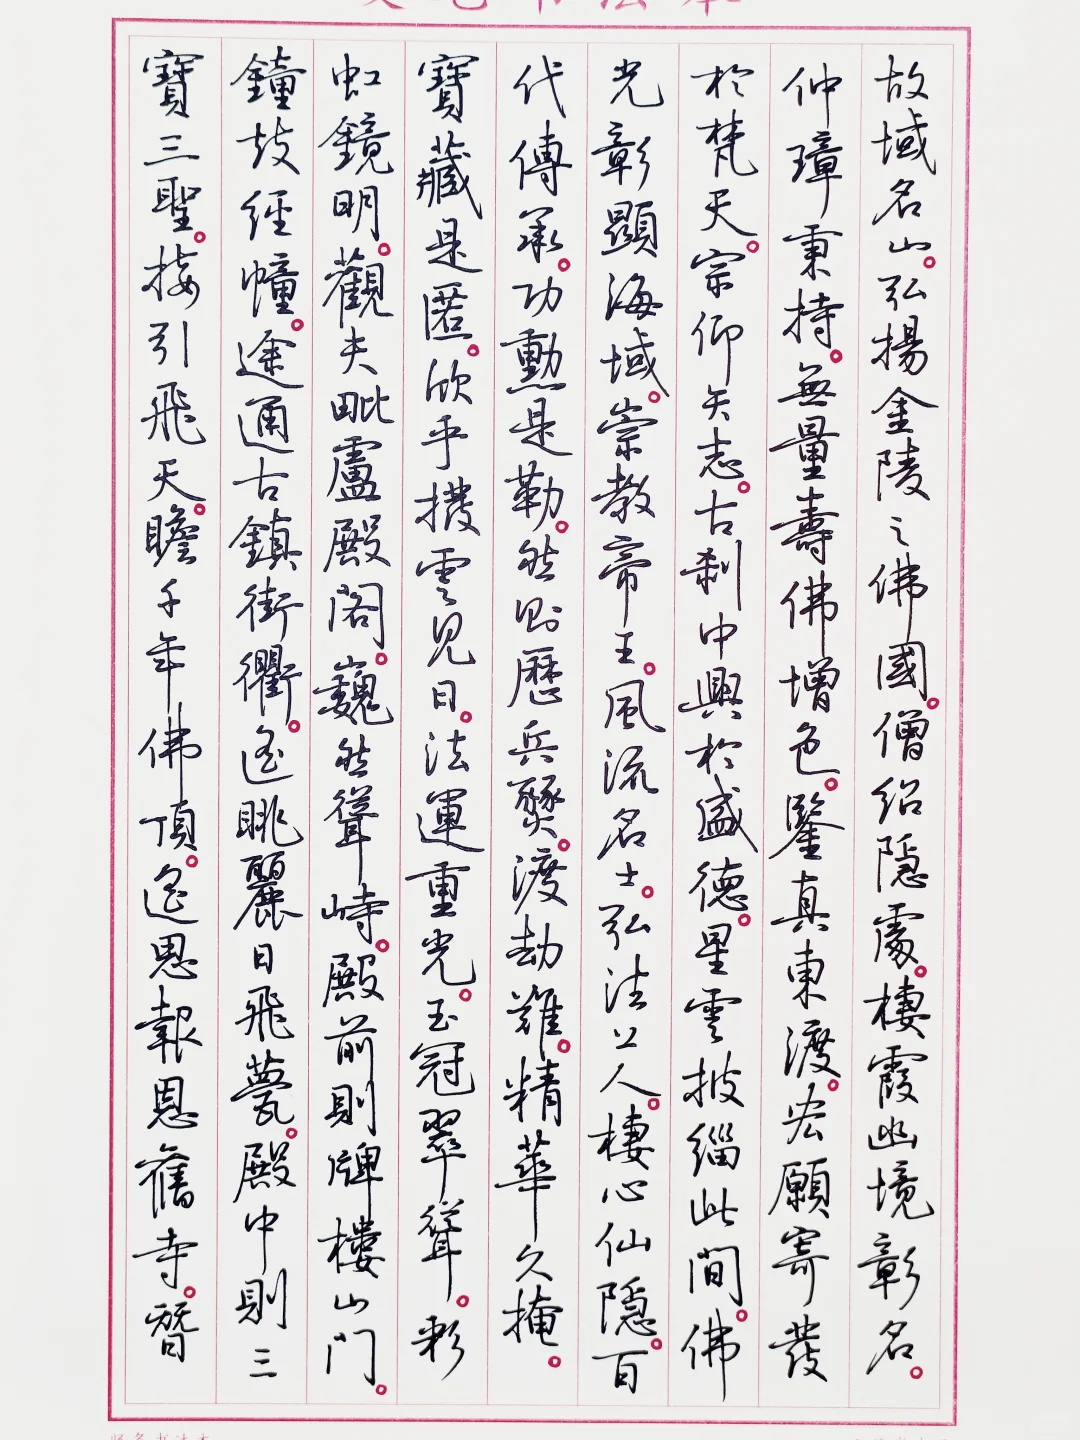 故域名山。弘揚金陵之佛國。僧紹隱處。棲霞幽境彰名。
仲璋秉持。無量壽佛增色。鑒真東渡。宏願寄發
於梵天。宗仰矢志。古刹中興於盛德。星雲披緇此間。佛
光彰顯海域。崇教帝王。風流名士。弘法上人。棲心仙隱。百
代傳承。功勳是勒。然則歷兵燹。渡劫難。精華久掩。
寶藏是匿。欣乎撥雲見日。法運重光。玉冠翠聳。彩
虹鏡明。觀夫毗盧殿閣。巍然聳峙。殿前則牌樓山門。
鐘鼓經幢。途通古鎮街衢。遙眺麗日飛甍。殿中則三
寶三聖。接引飛天。瞻千年佛頂。遙思報恩舊寺。暫